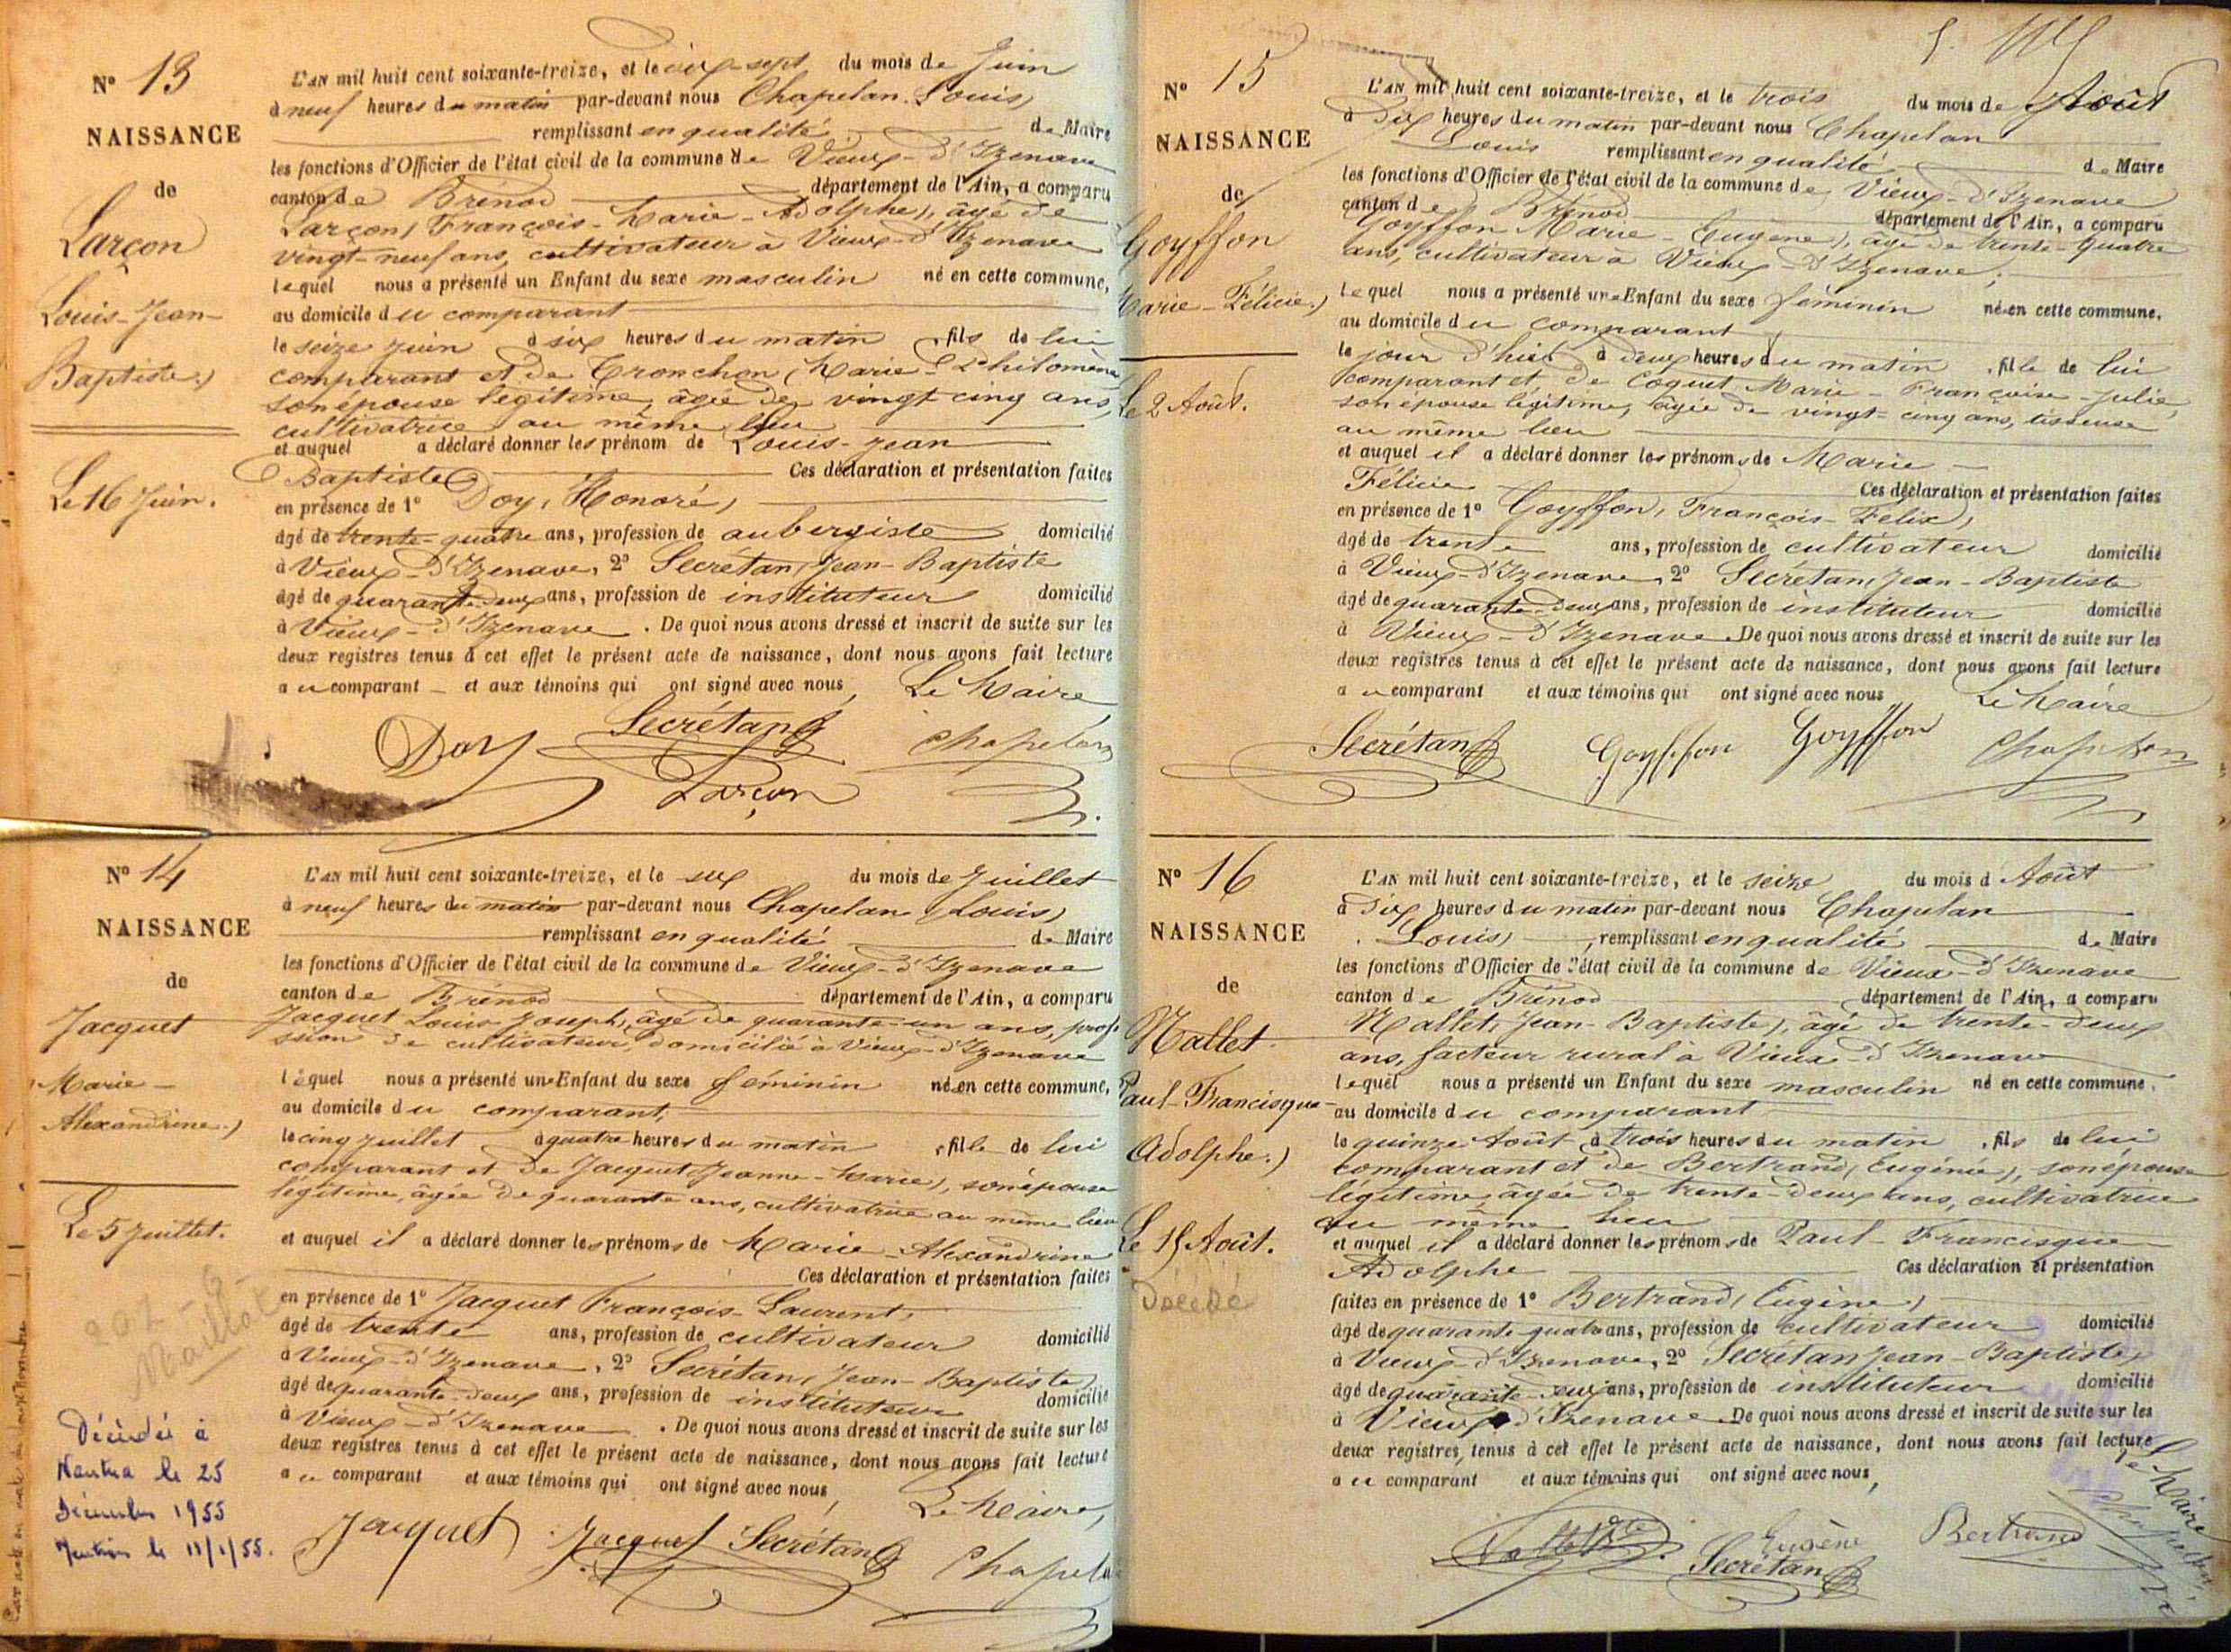 N° 13
NAISSANCE
de
Larçon
Louis-Jean-
Baptiste.)
Le 16 Juin.
L'AN mil huit cent soixante-treize, et le dix-sept du mois de Juin
à neuf heures du matin par-devant nous Chapelan (Louis)
remplissant en qualité de Maire
les fonctions d'Officier de l'état civil de la commune de Vieux-d'Izenave
canton de Brénod département de l'Ain, a comparu
Larçon (François-Marie-Adolphe), âgé de
vingt-neuf ans, cultivateur à Vieux-d'Izenave
lequel nous a présenté un Enfant du sexe masculin né en cette commune,
au domicile du comparant
le seize juin à six heures du matin, fils de lui
comparant et de Tronchon (Marie-Philomène)
son épouse légitime, âgée de vingt cinq ans,
cultivatrice au même lieu
et auquel a déclaré donner les prénom de Louis-Jean
Baptiste Ces déclaration et présentation faites
en présence de 1° Doy, Honoré,
âgé de trente-quatre ans, profession de aubergiste domicilié
à Vieux-d'Izenave, 2° Secrétan, Jean-Baptiste
âgé de quarante-deux ans, profession de instituteur domicilié
à Vieux-d'Izenave. De quoi nous avons dressé et inscrit de suite sur les
deux registres tenus à cet effet le présent acte de naissance, dont nous avons fait lecture
au comparant et aux témoins qui ont signé avec nous, Le Maire
Doy Secrétan Chapelan
Larçon
N° 14
NAISSANCE
de
Jacquet
Marie-
Alexandrine.)
Le 5 Juillet.
Maillat
Décédée à
Nantua le 25
Décembre 1955
Mention le 11/1/55.
L'AN mil huit cent soixante-treize, et le six du mois de Juillet
à neuf heures du matin par-devant nous Chapelan (Louis)
remplissant en qualité de Maire
les fonctions d'Officier de l'état civil de la commune de Vieux-d'Izenave
canton de Brénod département de l'Ain, a comparu
Jacquet Louis Joseph, âgé de quarante-un ans, profes
sion de cultivateur, domicilié à Vieux-d'Izenave
lequel nous a présenté une Enfant du sexe féminin née en cette commune,
au domicile du comparant,
le cinq juillet à quatre heures du matin, fille de lui
comparant et de Jacquet (Jeanne-Marie), son épouse
légitime, âgée de quarante ans, cultivatrice au même lieu
et auquel il a déclaré donner les prénoms de Marie-Alexandrine
Ces déclaration et présentation faites
en présence de 1° Jacquet François-Laurent,
âgé de trente ans, profession de cultivateur domicilié
à Vieux-d'Izenave, 2° Secrétan (Jean-Baptiste)
âgé de quarante-deux ans, profession de instituteur domicilié
à Vieux-d'Izenave. De quoi nous avons dressé et inscrit de suite sur les
deux registres tenus à cet effet le présent acte de naissance, dont nous avons fait lecture
au comparant et aux témoins qui ont signé avec nous
Le Maire,
Jacquet Jacquet Secrétan Chapela
N° 15
NAISSANCE
de
Goyffon
Marie-Félicie.)
Le 2 Août.
L'AN mil huit cent soixante-treize, et le trois du mois de Août
à Dix heures du matin par-devant nous Chapelan
Louis remplissant en qualité de Maire
les fonctions d'Officier de l'état civil de la commune de Vieux-d'Izenave
canton de Brénod département de l'Ain, a comparu
Goyffon Marie-Eugène), âgé de trente-quatre
ans, cultivateur à Vieux-d'Izenave,
lequel nous a présenté une Enfant du sexe féminin née en cette commune,
au domicile du comparant
le jour d'hier à deux heures du matin, fille de lui
comparant et de Coquet Marie-Françoise-Julie,
son épouse légitime, âgée de vingt-cinq ans, tisseuse
au même lieu
et auquel il a déclaré donner les prénoms de Marie-
Félicie Ces déclaration et présentation faites
en présence de 1° Goyffon, François-Félix,
âgé de trente ans, profession de cultivateur domicilié
à Vieux-d'Izenave, 2° Secrétan, Jean-Baptiste
âgé de quarante-deux ans, profession de instituteur domicilié
à Vieux-d'Izenave De quoi nous avons dressé et inscrit de suite sur les
deux registres tenus à cet effet le présent acte de naissance, dont nous avons fait lecture
au comparant et aux témoins qui ont signé avec nous Le Maire
Secrétan Goyffon Goyffon Chapelan
N° 16
NAISSANCE
de
Mallet
Paul-Francisque
Adolphe.)
Le 15 Août.
Décédé
L'AN mil huit cent soixante-treize, et le seize du mois d Août
à Dix heures du matin par-devant nous Chapelan
Louis), remplissant en qualité de Maire
les fonctions d'Officier de l'état civil de la commune de Vieux-d'Izenave
canton de Brénod département de l'Ain, a comparu
Mallet, Jean-Baptiste), âgé de trente-deux
ans, facteur rural à Vieux d'Izenave
lequel nous a présenté un Enfant du sexe masculin né en cette commune,
au domicile du comparant
le quinze Août à trois heures du matin, fils de lui
comparant et de Bertrand (Eugénie), son épouse
légitime, âgée de trente-deux ans, cultivatrice
au même lieu
et auquel il a déclaré donner les prénoms de Paul-Francisque
Adolphe Ces déclaration et présentation
faites en présence de 1° Bertrand (Eugène)
âgé de quarante-quatre ans, profession de cultivateur domicilié
à Vieux-d'Izenave, 2° Secrétan Jean-Baptiste)
âgé de quarante-deux ans, profession de instituteur domicilié
à Vieux d'Izenave De quoi nous avons dressé et inscrit de suite sur les
deux registres tenus à cet effet le présent acte de naissance, dont nous avons fait lecture
au comparant et aux témoins qui ont signé avec nous,
Le Maire
Chapelan
Eugène Bertrand
Secrétan